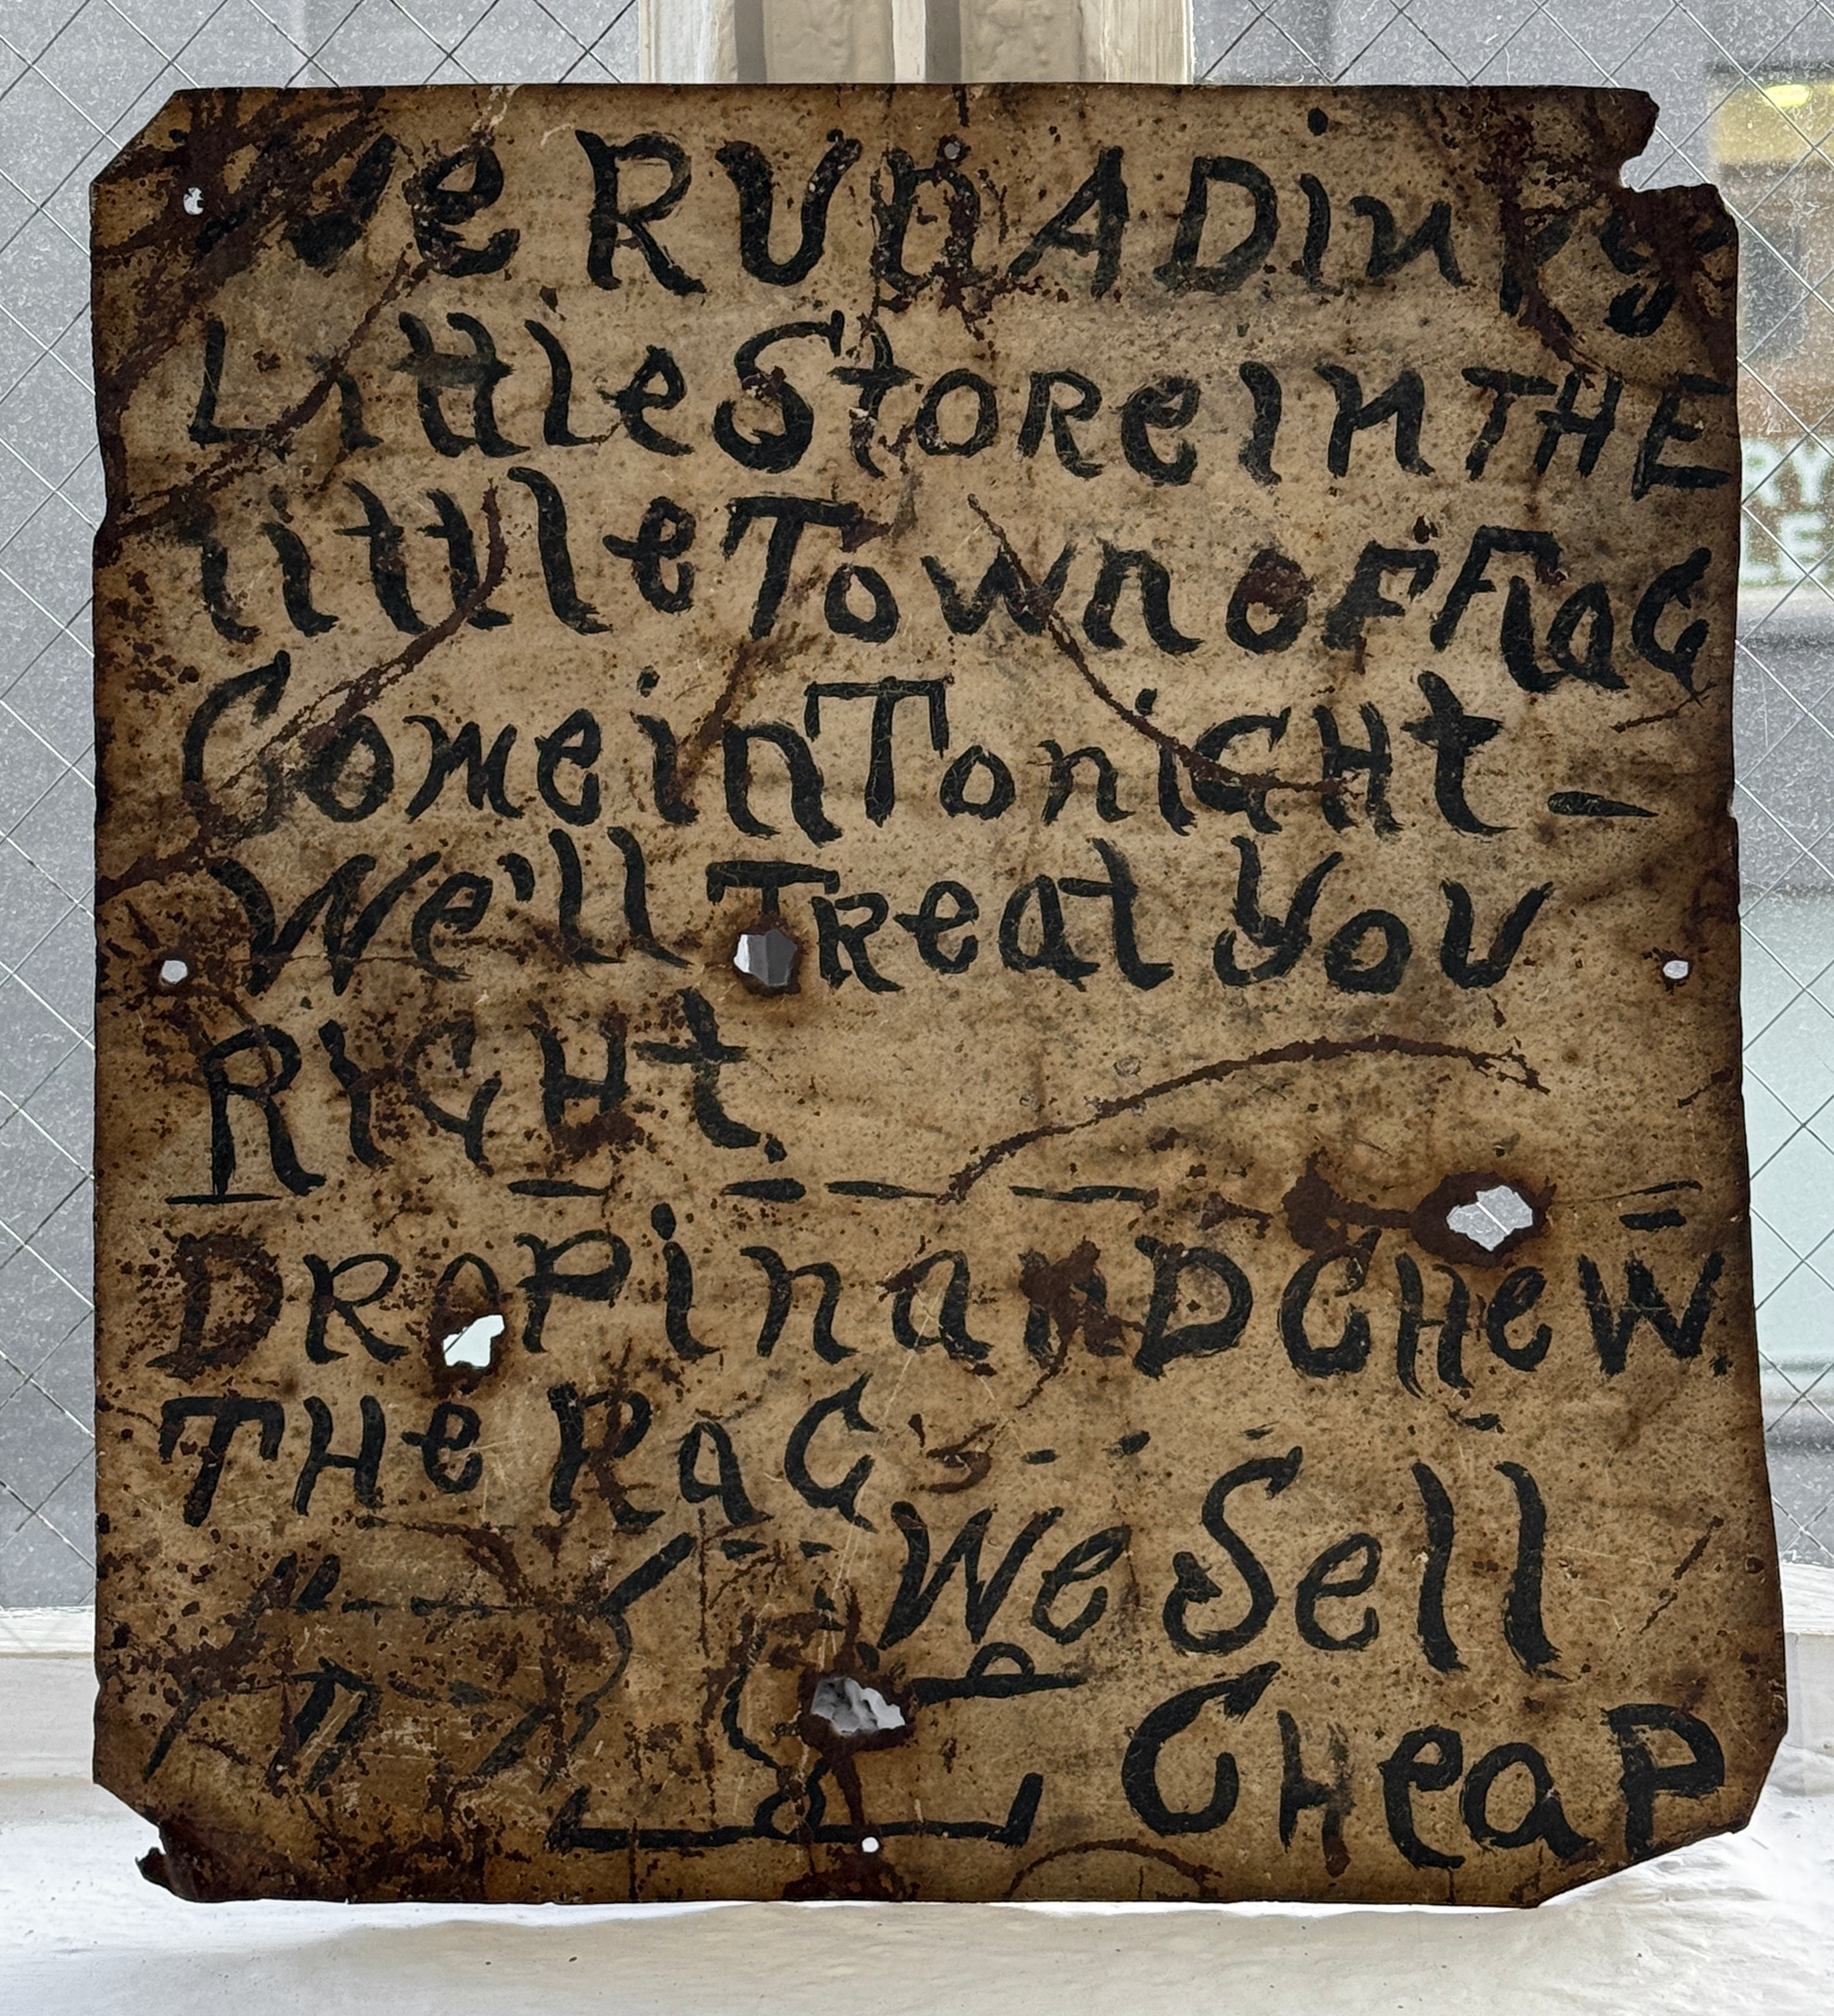 We RUn A Dinky
Little Store In THE
little Town oF Flag
Come in ToniGHt –
We'll TReat You
RIGHt.
DRoP in anD CHew
THe RaG
We Sell
CHeaP
RY
LE